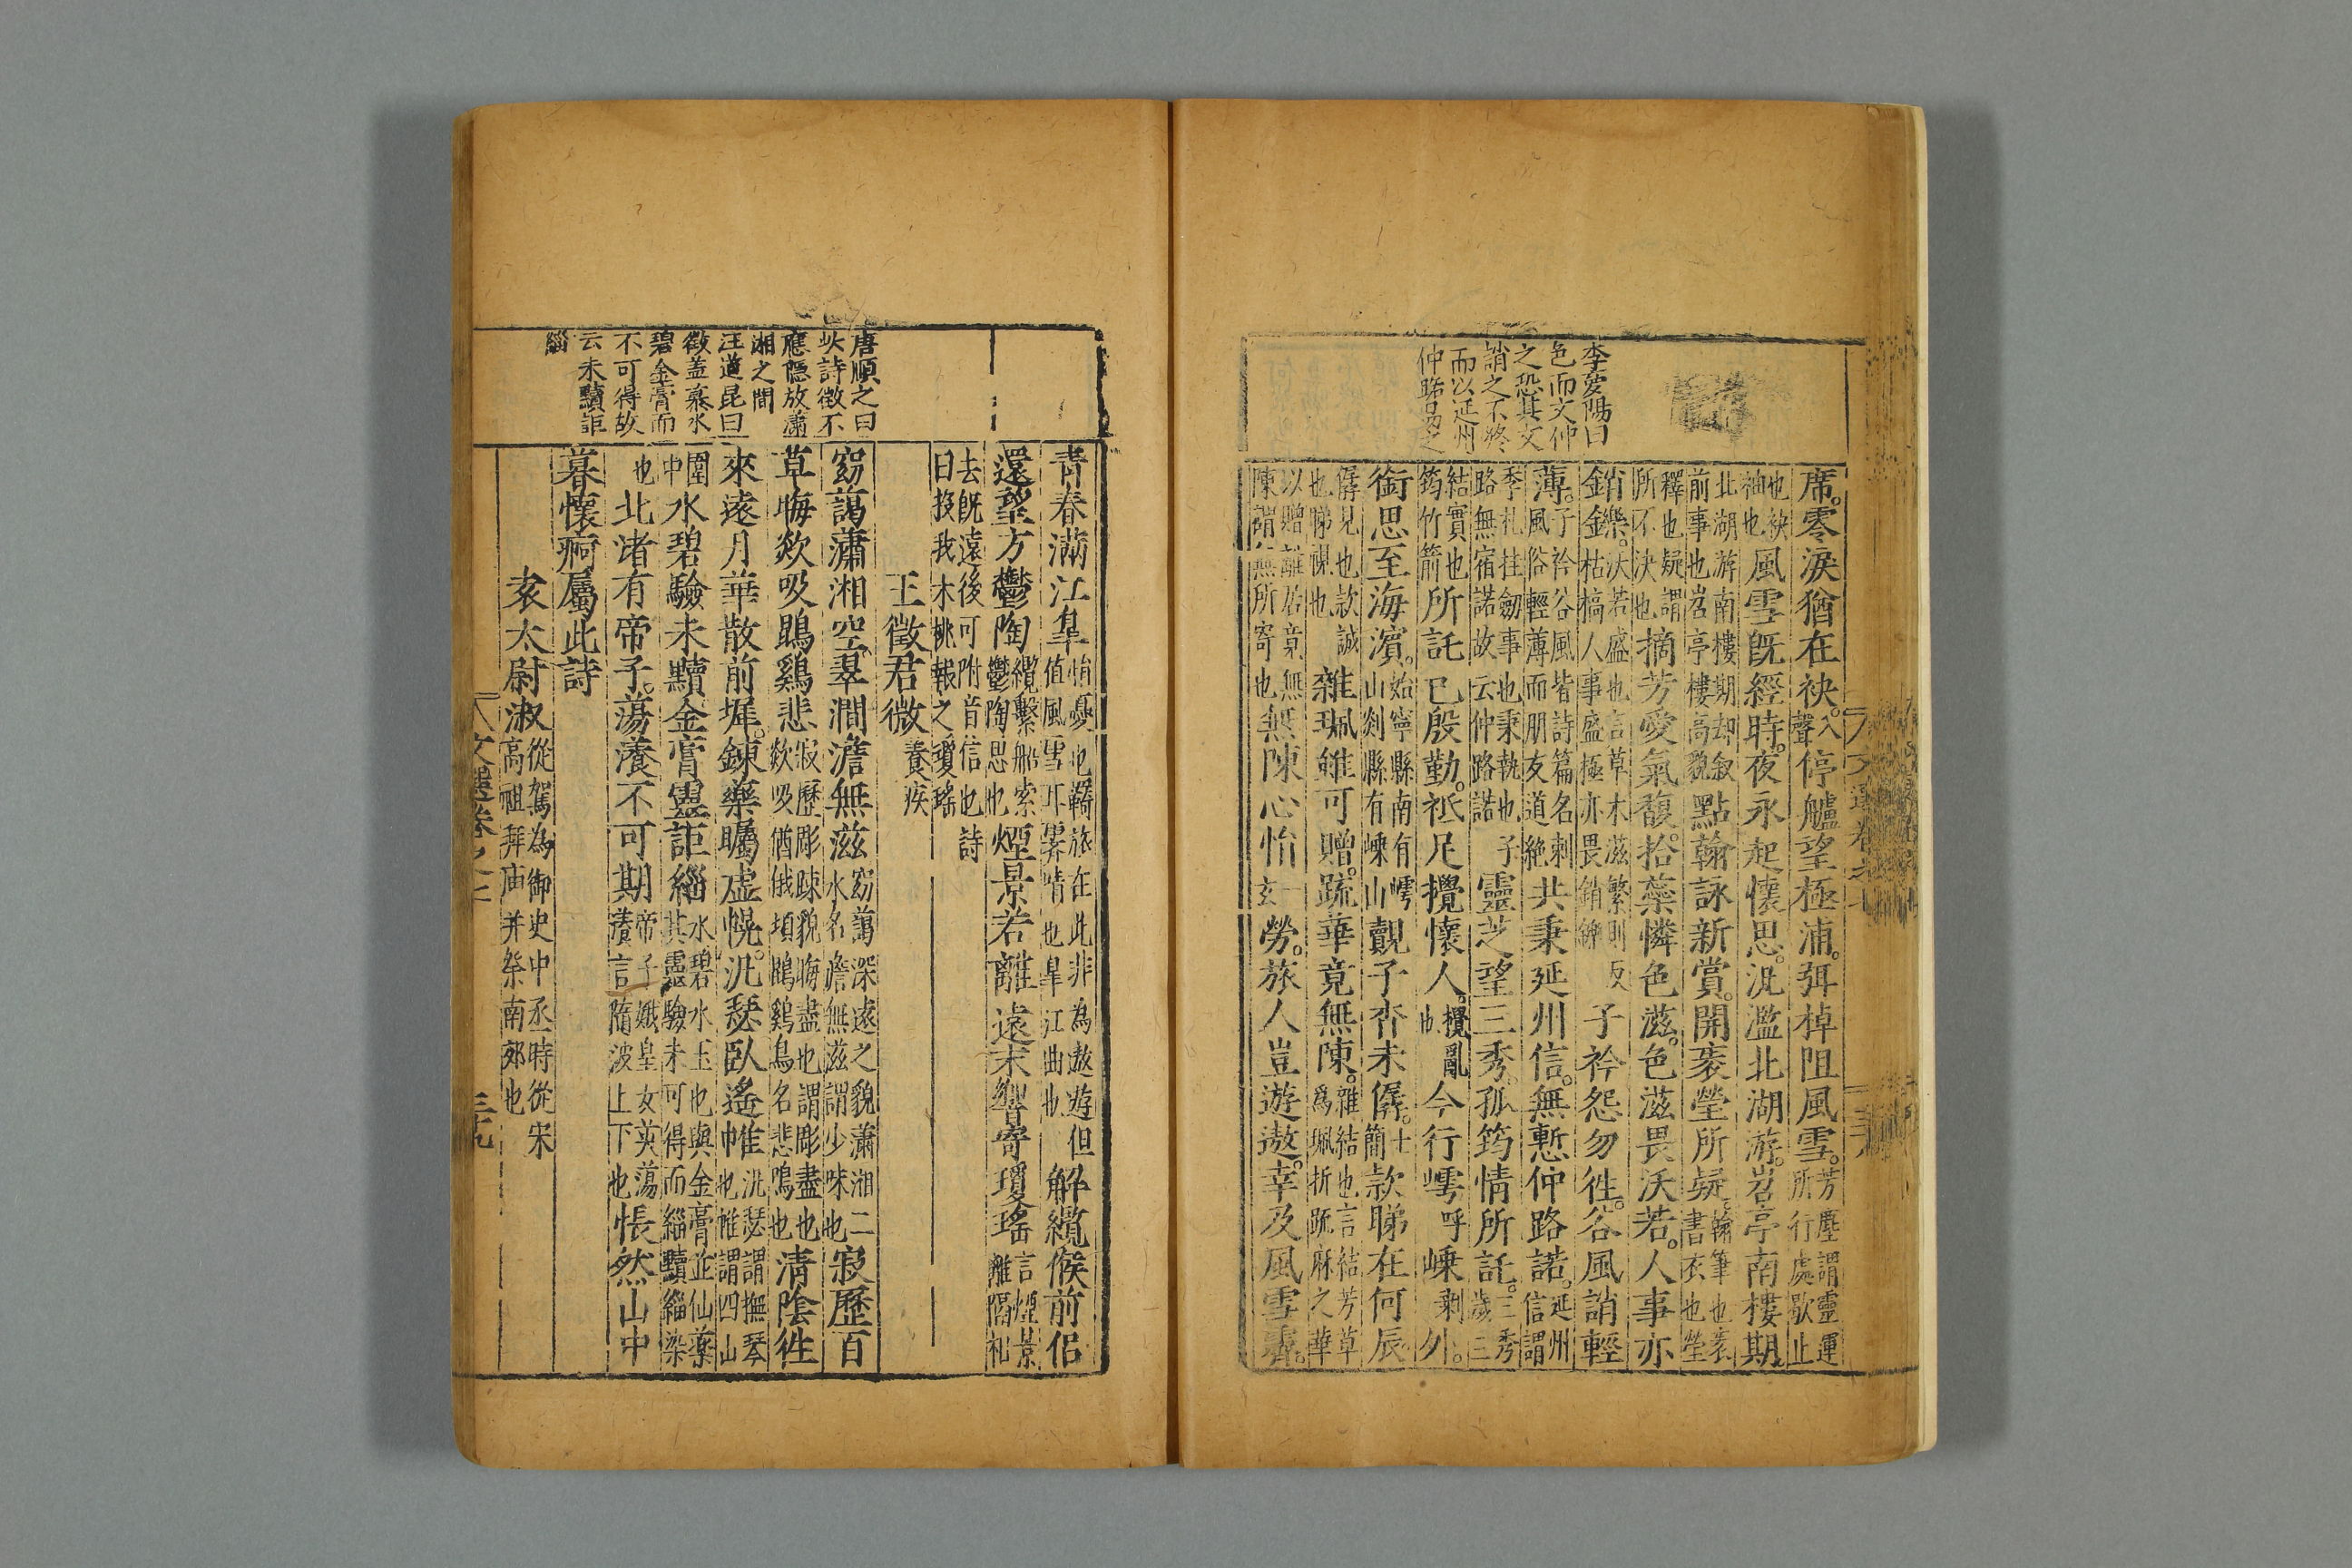 李
陽曰
色而文仲
之恐其文
誚之不終
而以延州
席。零淚猶在袂。入聲停艫望極浦。弭棹阻風雪。芳塵謂靈運所行處歇止
也袂袖也風雪既經時。夜永起懷思。汎濫北湖游。岧亭南樓期。
北湖游南樓期却敘前事也岧亭樓高貌點翰詠新賞。開袠瑩所疑。翰筆也袠書衣也瑩
釋也疑謂所不決也摘芳愛氣馥。拾蘂憐色滋。色滋畏沃若。人事亦
銷鑠。沃若盛也言草木滋繁則枯槁人事盛極亦畏銷鑠子衿怨勿徃。谷風誚輕
薄。子衿谷風皆詩篇名刺風俗輕薄而朋友道絶共秉延州信。無慙仲路諾。延州信謂
季札挂劒事也秉執也子路無宿諾故云仲路諾靈芝望三秀。孤筠情所託。三秀歲三
結實也筠竹箭所託已殷勤。祗足攪懷人。攪亂也今行嶀呼嵊剩外。
銜思至海濱。始寧縣南有嶀山剡縣有嵊山覿子杳未僝。士簡款睇在何辰
僝見也款誠也睇視也雜珮雖可贈。疏華竟無陳。雜結也言結芳草為珮折疏麻之華
以贈離居竟無陳謂無所寄也無陳心悁玄勞。旅人豈遊遨。幸及風雪霽。
唐順之曰
此詩徵不
應隱放瀟
湘之間
汪道昆曰
徵蓋慕水
碧金膏而
不可得故
云未黷詎
緇
青春滿江皐悁憂也羈旅在此非為遨遊但值風雪耳霽晴也皐江曲也解纜候前侶
還望方鬱陶纜繫船索鬱陶思也煙景若離遠末響寄瓊瑤言煙景離隔礼
去既遠後可附音信也詩曰投我木桃報之瓊瑤
王徵君微養疾
窈藹瀟湘空翠澗澹無滋窈藹深遠之貌瀟湘二水名澹無滋謂少味也寂歷百
草晦欻吸鵾鷄悲寂歷彫踈貌晦盡也謂彫盡也欻吸猶俄頃鵾鷄鳥名悲鳴也清陰徃
來遠月華散前墀。鍊藥矚虛幌。汎瑟臥遙帷汎瑟謂撫琴也帷謂四山
圍中水碧驗未黷金膏靈詎緇水碧水玉也與金膏並仙藥其靈驗未可得而緇黷緇染
也北渚有帝子。蕩瀁不可期帝子娥皇女英蕩瀁言隨波上下也悵然山中
暮懷痾屬此詩
袁太尉淑從駕為御史中丞時從宋高祖拜庙并祭南郊也
文選卷之七
三九